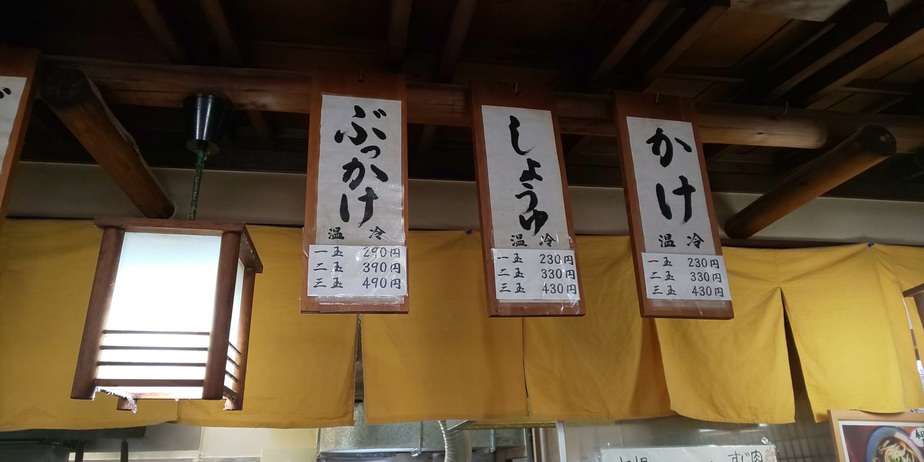 ぶっかけ
温 冷
一玉 290円
二玉 390円
三玉 490円
しょうゆ
温 冷
一玉 230円
二玉 330円
三玉 430円
かけ
温 冷
一玉 230円
二玉 330円
三玉 430円
すじ肉